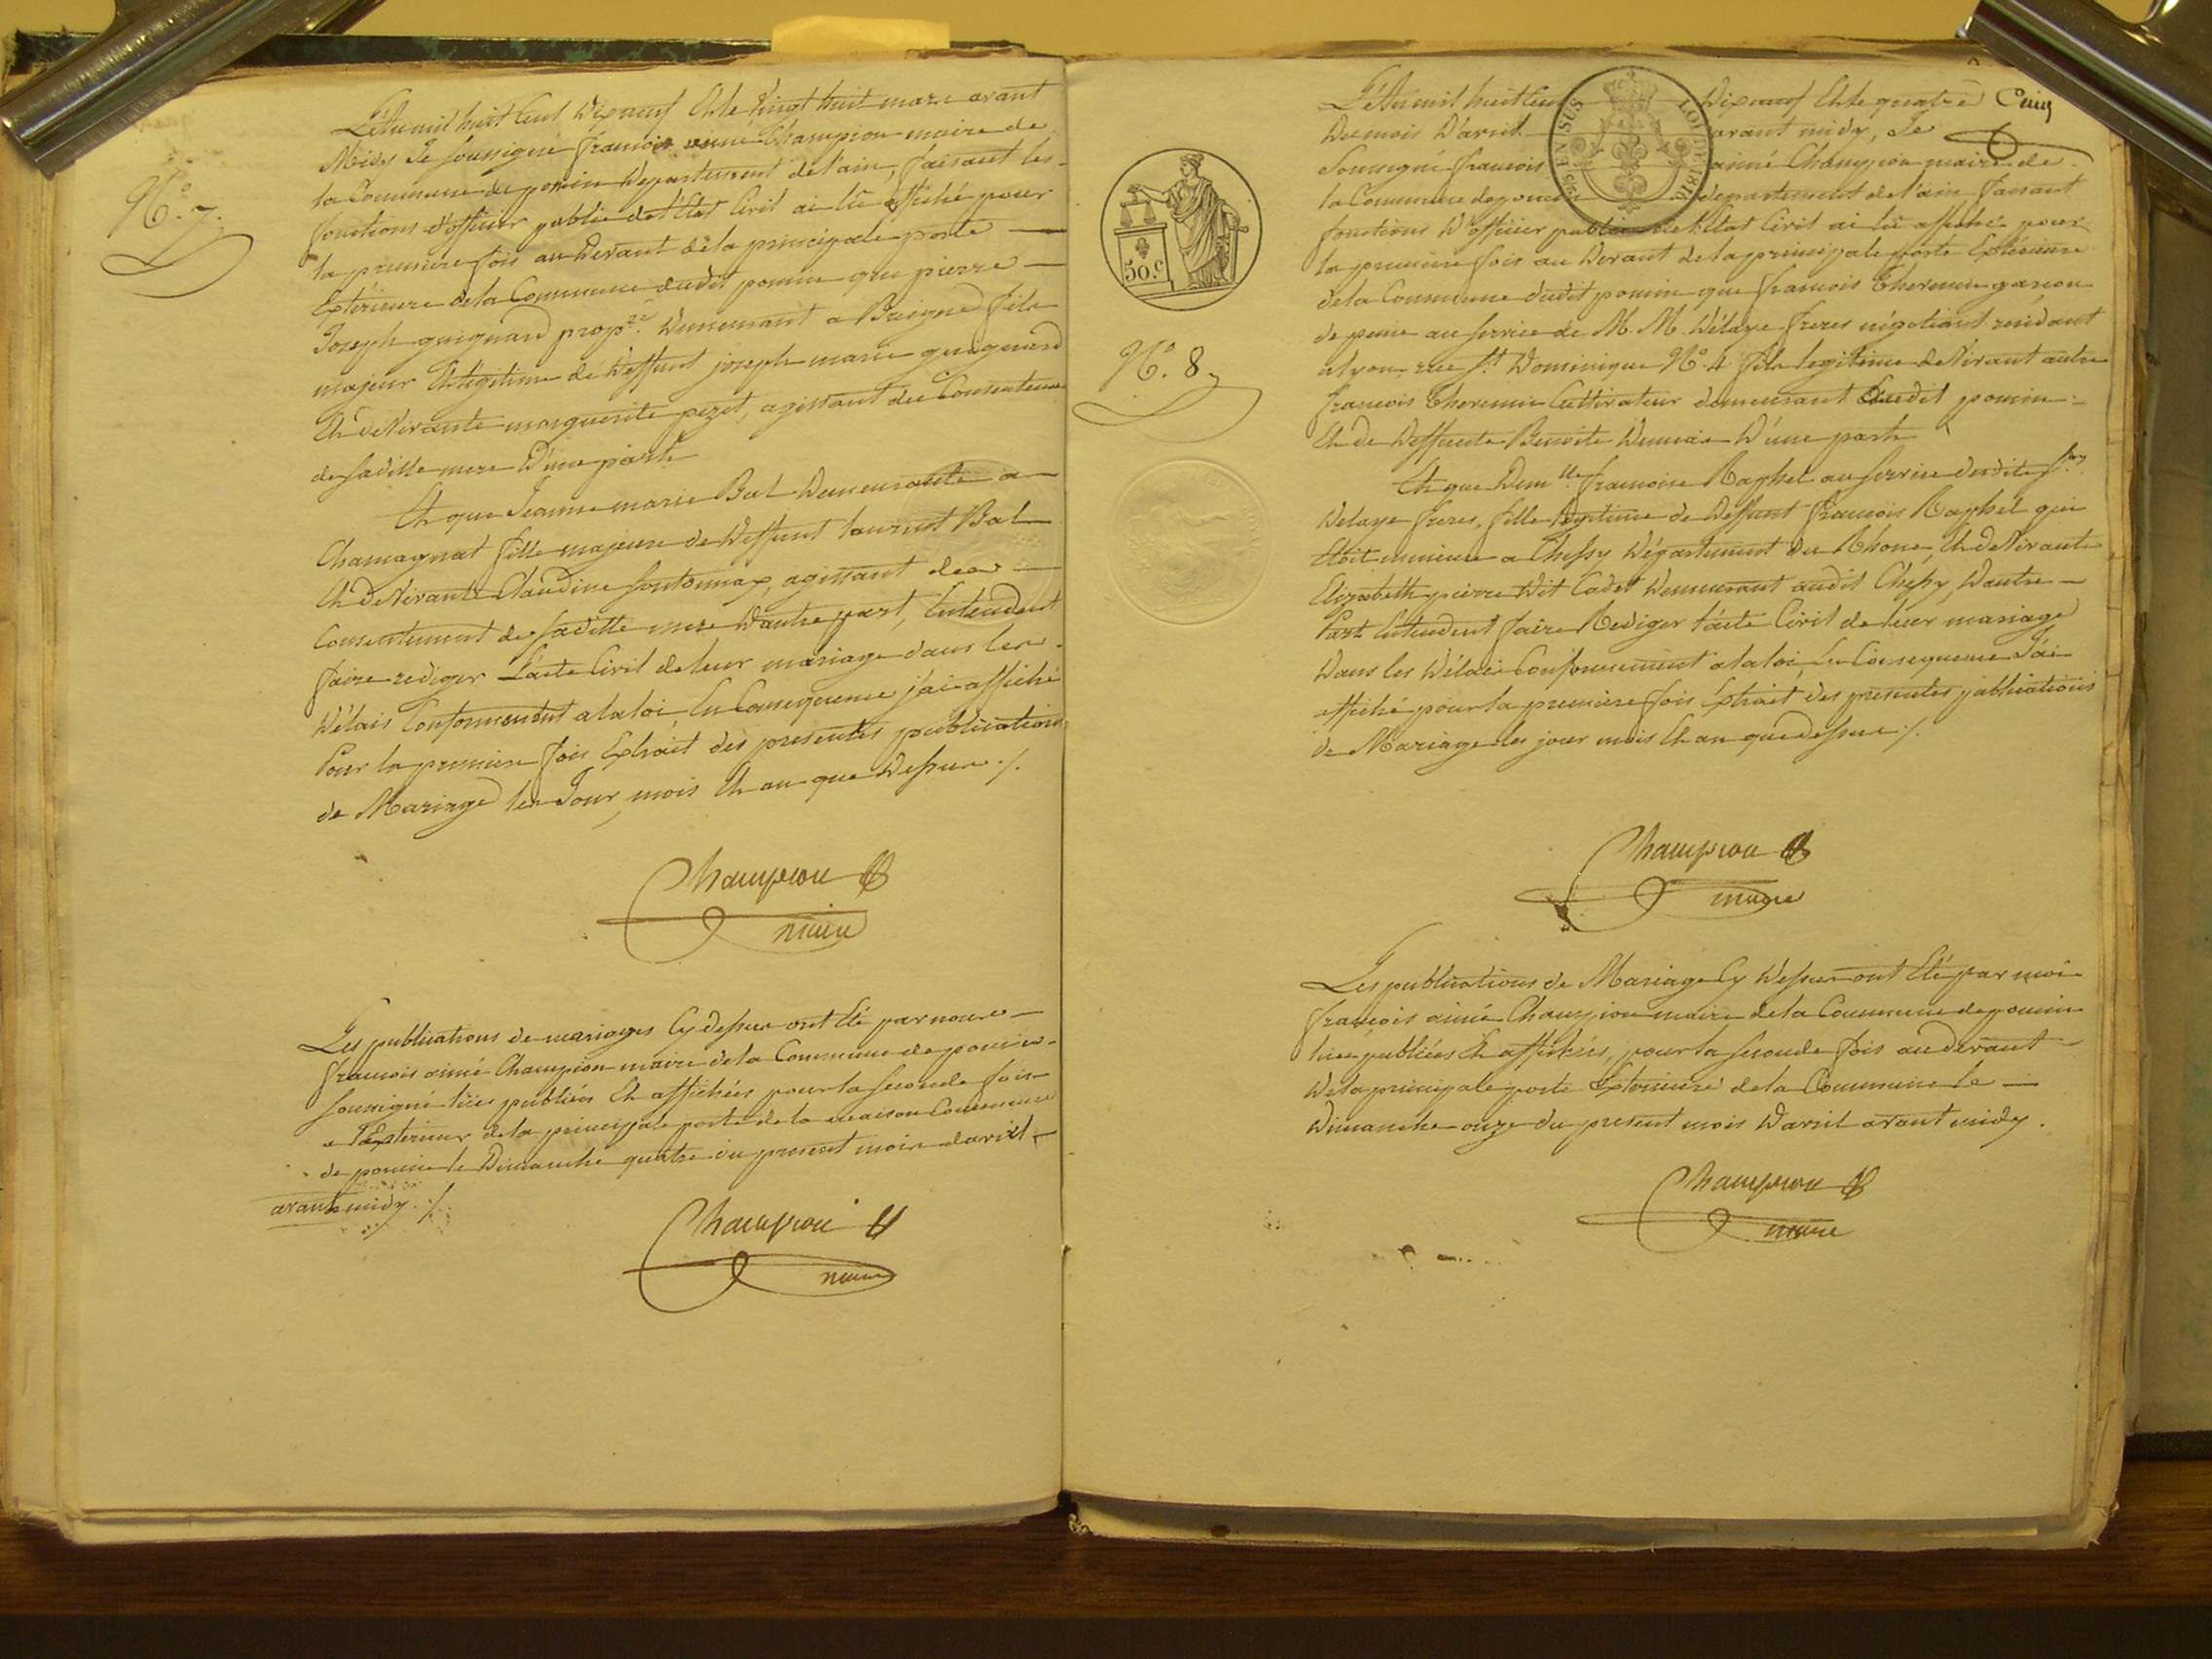 N.° 7.
L'An mil huit Cent Dixneuf Et le Vingt huit mars avant
Midy Je soussigné francois aimé Champion maire de
la Commune de poncin departement de l'ain, faisant les
fonctions d'officier public de l'Etat Civil ai lû affiché pour
la premiere fois au Devant de la principale porte
Extérieure de la Commune dudit poncin que pierre
Joseph guignard prop.re Demeurant a Breigne fils
majeur Et légitime de Deffunt joseph marie guignard
Et de Vivante marguerite pezet, agissant du Consentement
de sadille mere D'une part
Et que Jeanne marie Bal Demeurante a
Chamagnat fille majeure de Deffunt laurent Bal
Et de Vivante Claudine fontonnax, agissant de
Consentement de saditte mere D'autre part, Entendent
faire rediger L'acte Civil de leur mariage dans les
Délais Conformement a la loi, En Consequence j'ai affiché
Pour la premiere fois Extrait des presentes publications
de Mariage les Jour, mois Et an que Dessus ./.
Champion
maire
Les publications de mariages Cy dessus ont Eté par nous
francois aimé Champion maire de la Commune de poncin
soussigné lües publiées Et affichées pour la seconde fois
a l'Exterieur de la principale porte de la maison Commune
de poncin le Dimanche quatre du present mois d'avril
avant midy ./.
Champion
maire
50.c
N.° 8.
L'An mil huit Cent Dixneuf Et le quatre Cinq
Du mois D'avril avant midy, Je
Soussigné francois aimé Champion maire de
la Commune de poncin departement de l'ain faisant
fonctions D'officier public de l'Etat Civil ai lû affiché pour
la premiere fois au Devant de la principale porte Extérieure
de la Commune dudit poncin que francois Theremin garçon
de peine au service de M. M. Délaye freres négotiant residant
a lyon rue St. Dominique N.° 4 fils legitime de Vivant autre
francois Theremin Cultivateur demeurant Audit poncin
Et de Deffunte Benoite D'une part
Et que Dem.lle francoise Raphel au service desdits Srs
Delaye freres, fille legitime de Deffunt francois Raphel qui
Etoit mineur a Chessy Département du Rhone, Et de Vivante
Elizabeth pierre Dit Cadet Demeurant audit Chessy, D'autre
Part Entendent faire Rediger l'acte Civil de leur mariage
Dans les Délais Conformement a la loi, En Consequence J'ai
affiché pour la premiere fois Extrait des presentes publications
de Mariage les jour mois Et an que dessus ./.
Champion
maire
Les publications de Mariage Cy Dessus ont Eté par moi
francois aimé Champion maire de la Commune de poncin
lues publiées Et affichées, pour la seconde fois au devant
De la principale porte Exterieure de la Commune le
Dimanche onze du present mois D'avril avant midy.
Champion
maire